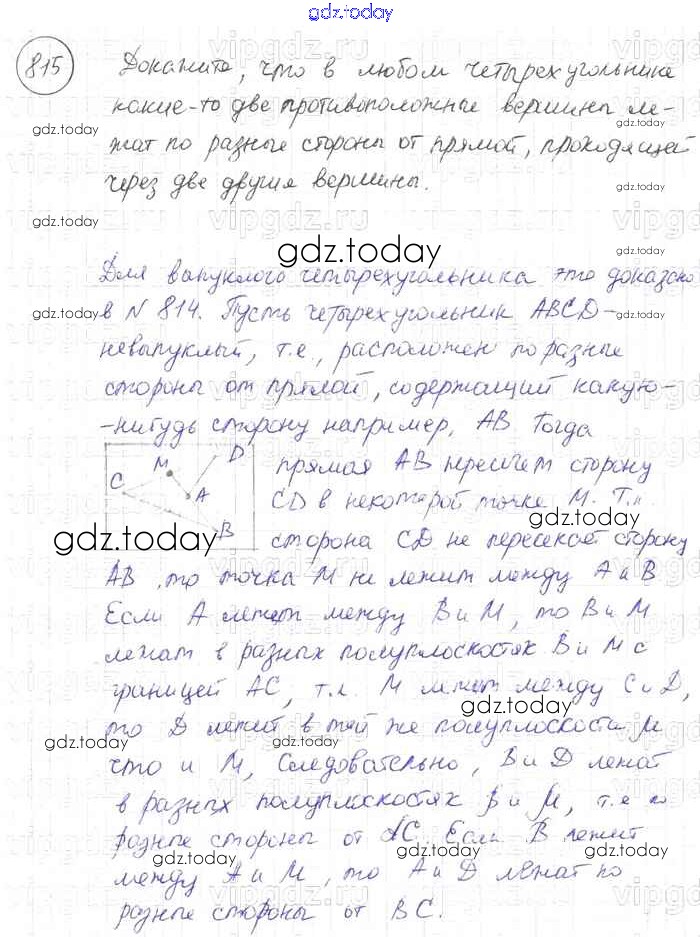 gdz.today
815
Докажите, что в любом четырехугольнике
какие-то две противоположные вершины ле-
gdz.today
жат по разные стороны от прямой, проходящей
через две другие вершины.
gdz.today
gdz.today
Для выпуклого четырехугольника это доказано
в N 814. Пусть четырехугольник ABCD-
gdz.today
невыпуклый, т.е., расположен по разные
стороны от прямой, содержащий какую-
gdz.today
-нибудь сторону например, AB. Тогда
прямая AB пересечет сторону
CD в некоторой точке M. Т.к
gdz.today
сторона CD не пересекает сторону
gdz.today
C M D A B
AB, то точка M не лежит между A и B
Если A лежит между B и M, то B и M
gdz.today
лежат в разных полуплоскостях B и M с
gdz.today
границей AC, т.к. M лежит между C и D,
то D лежит в той же полуплоскости
gdz.today
gdz.today
что и M, Следовательно, B и D лежат
в разных полуплоскостях, т.е по
gdz.today
разные стороны от AC. Если B лежит
gdz.today
между A и M, то A и D лежат по
gdz.today
разные стороны от BC.
gdz.today